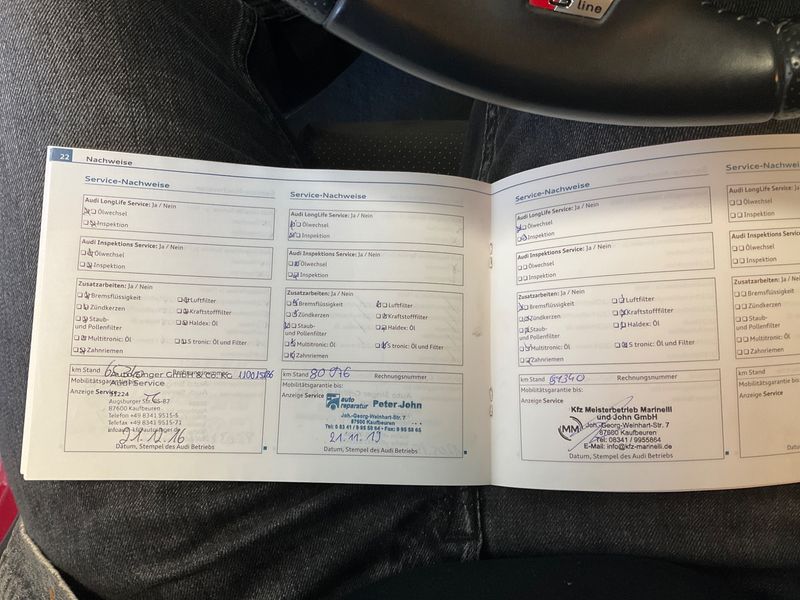 line
22 Nachweise
Service-Nachweise
Audi LongLife Service: Ja / Nein
Ölwechsel
Inspektion
Audi Inspektions Service: Ja / Nein
Ölwechsel
Inspektion
Zusatzarbeiten: Ja / Nein
Bremsflüssigkeit Luftfilter
Zündkerzen Kraftstofffilter
Staub- Haldex: Öl
und Pollenfilter
Multitronic: Öl S tronic: Öl und Filter
Zahnriemen
km Stand
Mobilitätsgarantie
Audi Service
Anzeige Service
Augsburger
87600 Kaufbeuren
Telefon +49 8341 9515-5
Telefax +49 8341 9515-71
21.12.16
Datum, Stempel des Audi Betriebs
Service-Nachweise
Audi LongLife Service: Ja / Nein
Ölwechsel
Inspektion
Audi Inspektions Service: Ja / Nein
Ölwechsel
Inspektion
Zusatzarbeiten: Ja / Nein
Bremsflüssigkeit Luftfilter
Zündkerzen Kraftstofffilter
Staub- Haldex: Öl
und Pollenfilter
Multitronic: Öl S tronic: Öl und Filter
Zahnriemen
km Stand 80 976 Rechnungsnummer
Mobilitätsgarantie bis:
Anzeige Service
auto reparatur Peter John
Joh.-Georg-Weinhart-Str. 7
87600 Kaufbeuren
Tel: 0 83 41 / 9 95 58 64 · Fax: 9 95 58 65
21.11.19
Datum, Stempel des Audi Betriebs
Service-Nachweise
Audi LongLife Service: Ja / Nein
Ölwechsel
Inspektion
Audi Inspektions Service: Ja / Nein
Ölwechsel
Inspektion
Zusatzarbeiten: Ja / Nein
Bremsflüssigkeit Luftfilter
Zündkerzen Kraftstofffilter
Staub- Haldex: Öl
und Pollenfilter
Multitronic: Öl S tronic: Öl und Filter
Zahnriemen
km Stand Rechnungsnummer
Mobilitätsgarantie bis:
Anzeige Service
Kfz Meisterbetrieb Marinelli
und John GmbH
MM Joh.-Georg-Weinhart-Str. 7
87600 Kaufbeuren
Tel: 08341 / 9955864
E-Mail: info@kfz-marinelli.de
Datum, Stempel des Audi Betriebs
Service-Nachweise
Audi LongLife Service: Ja
Ölwechsel
Inspektion
Audi Inspektions Service
Ölwechsel
Inspektion
Zusatzarbeiten: Ja / Nein
Bremsflüssigkeit
Zündkerzen
Staub-
und Pollenfilter
Multitronic: Öl
Zahnriemen
km Stand
Mobilitätsgarantie bis:
Anzeige Service
Datum